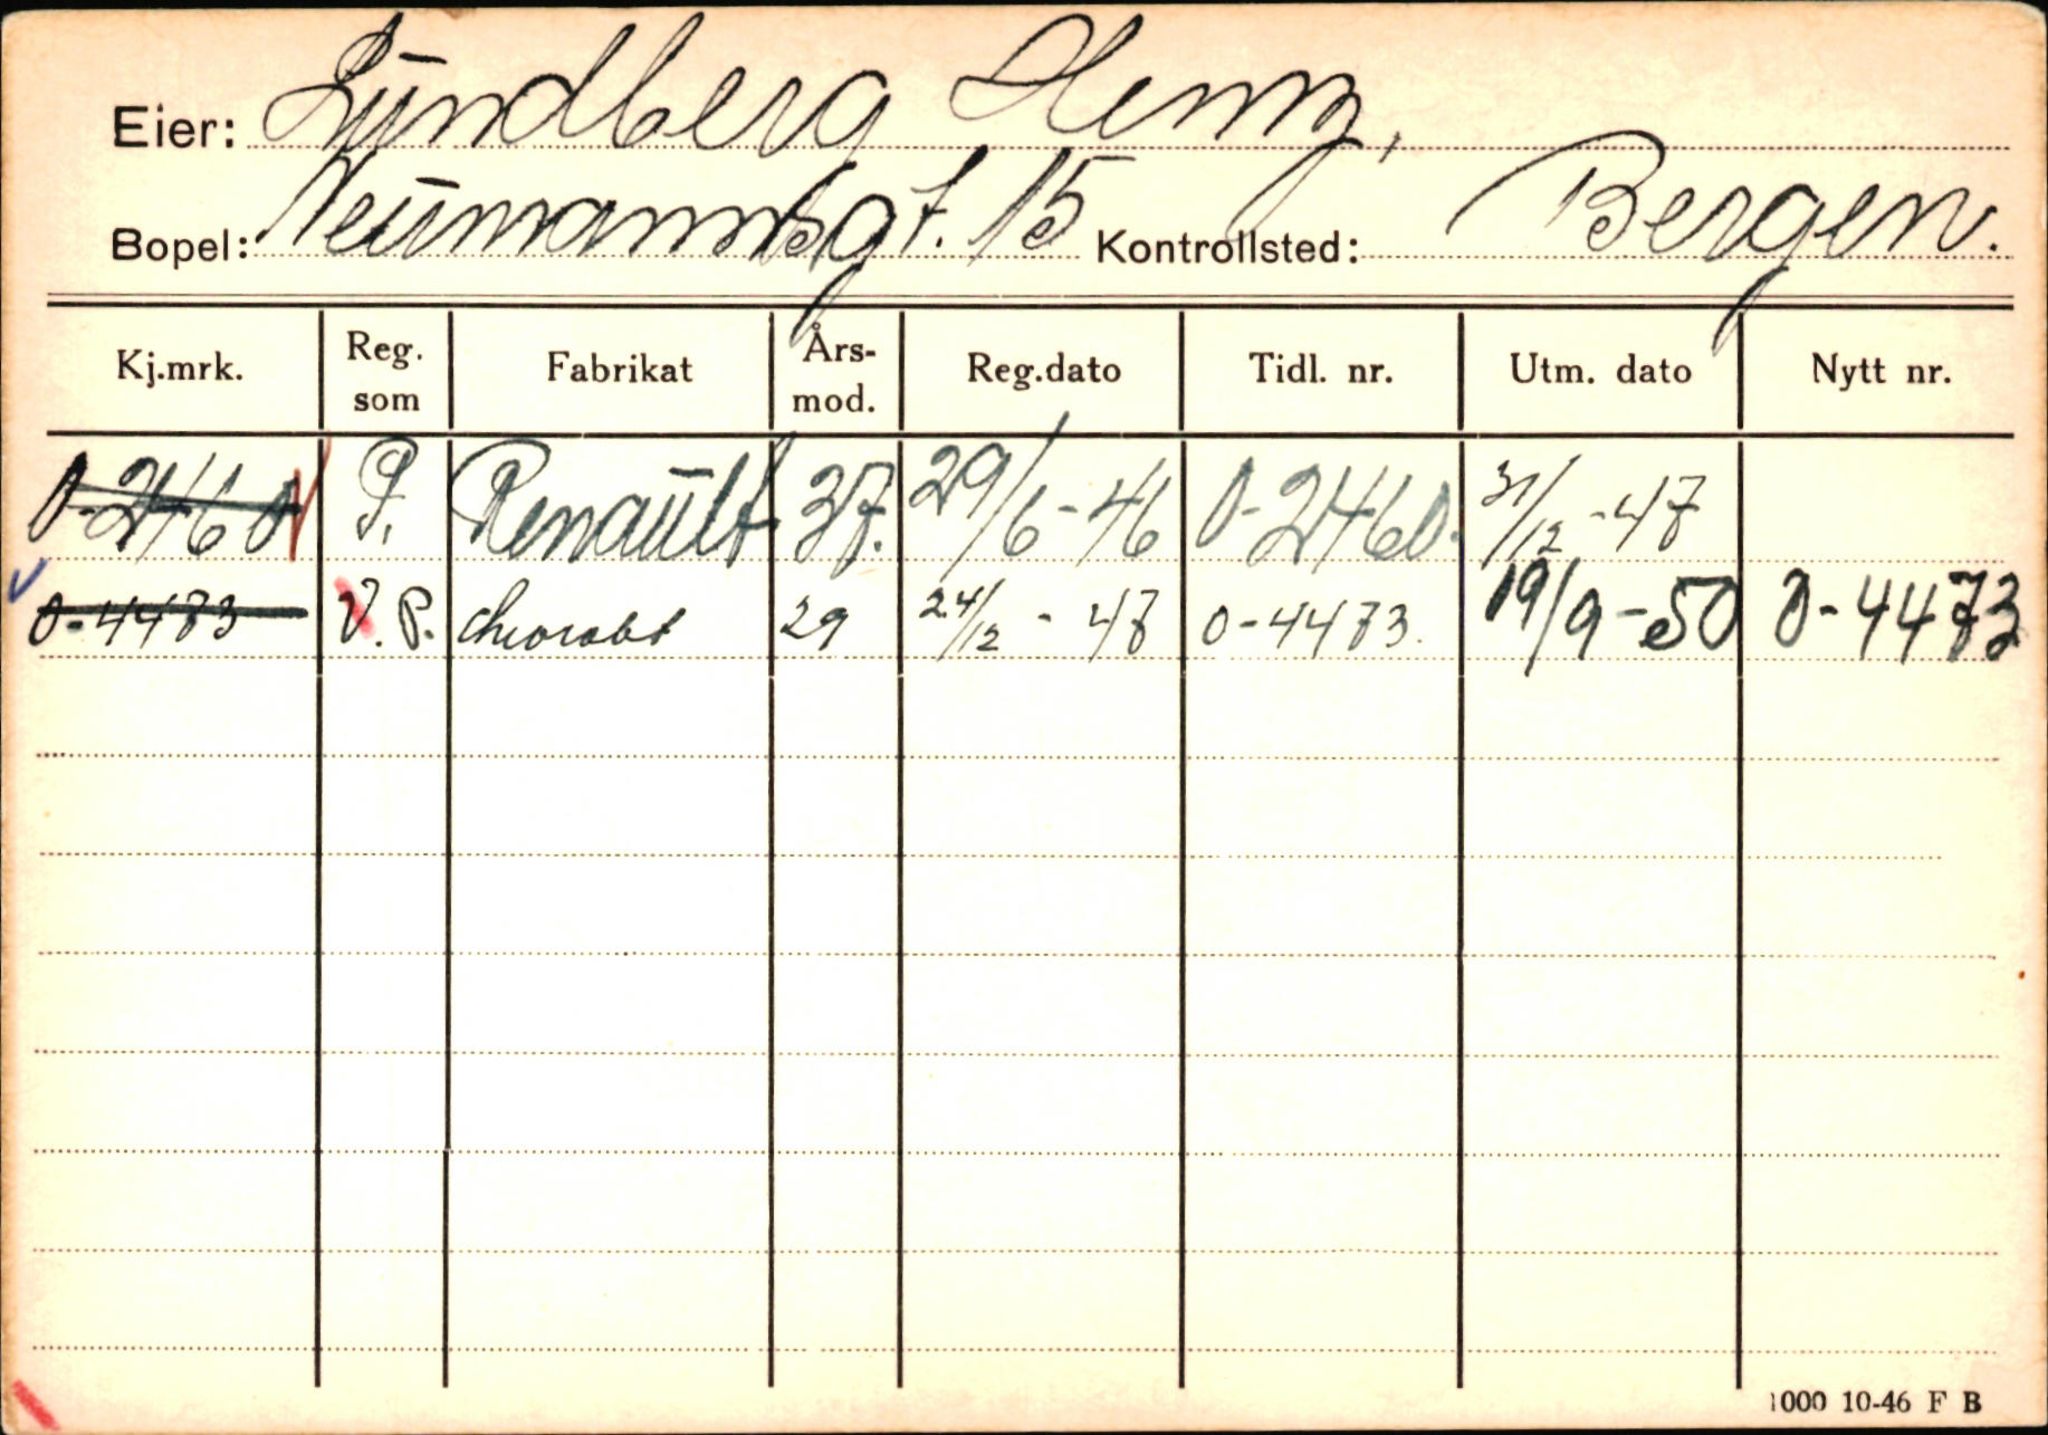 Eier: Lundberg Henry,
Bopel: Neumannsgt. 15 Kontrollsted: Bergen.
Kj.mrk. Reg. som Fabrikat Års-mod. Reg.dato Tidl. nr. Utm. dato Nytt nr.
O-2460 P. Renault 37. 29/6-46 O-2460. 31/12-47
O-4473 V.P. 29 24/12-47 O-4473. 19/9-50 O-4473
1000 10-46 F B